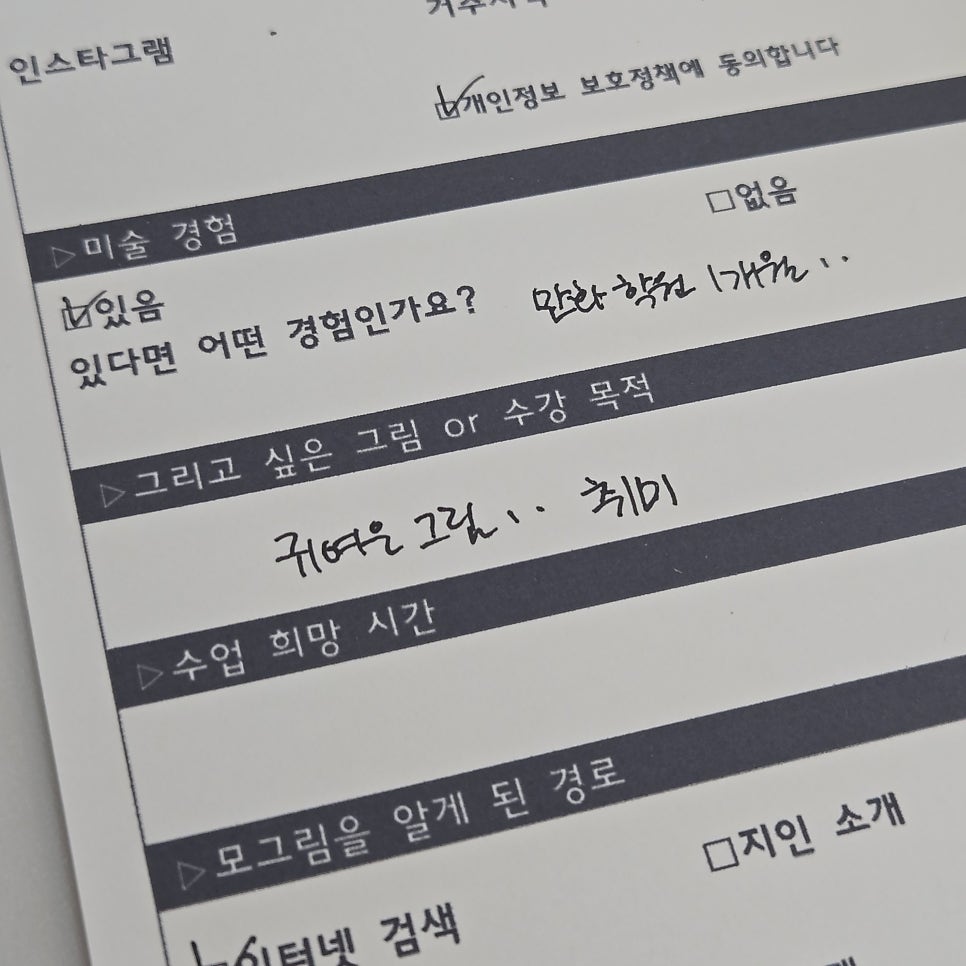 인스타그램
☑개인정보 보호정책에 동의합니다
▷미술 경험
☑있음 □없음
있다면 어떤 경험인가요? 만화 학원 1개월..
▷그리고 싶은 그림 or 수강 목적
귀여운 그림.. 취미
▷수업 희망 시간
▷모그림을 알게 된 경로
☑인터넷 검색 □지인 소개